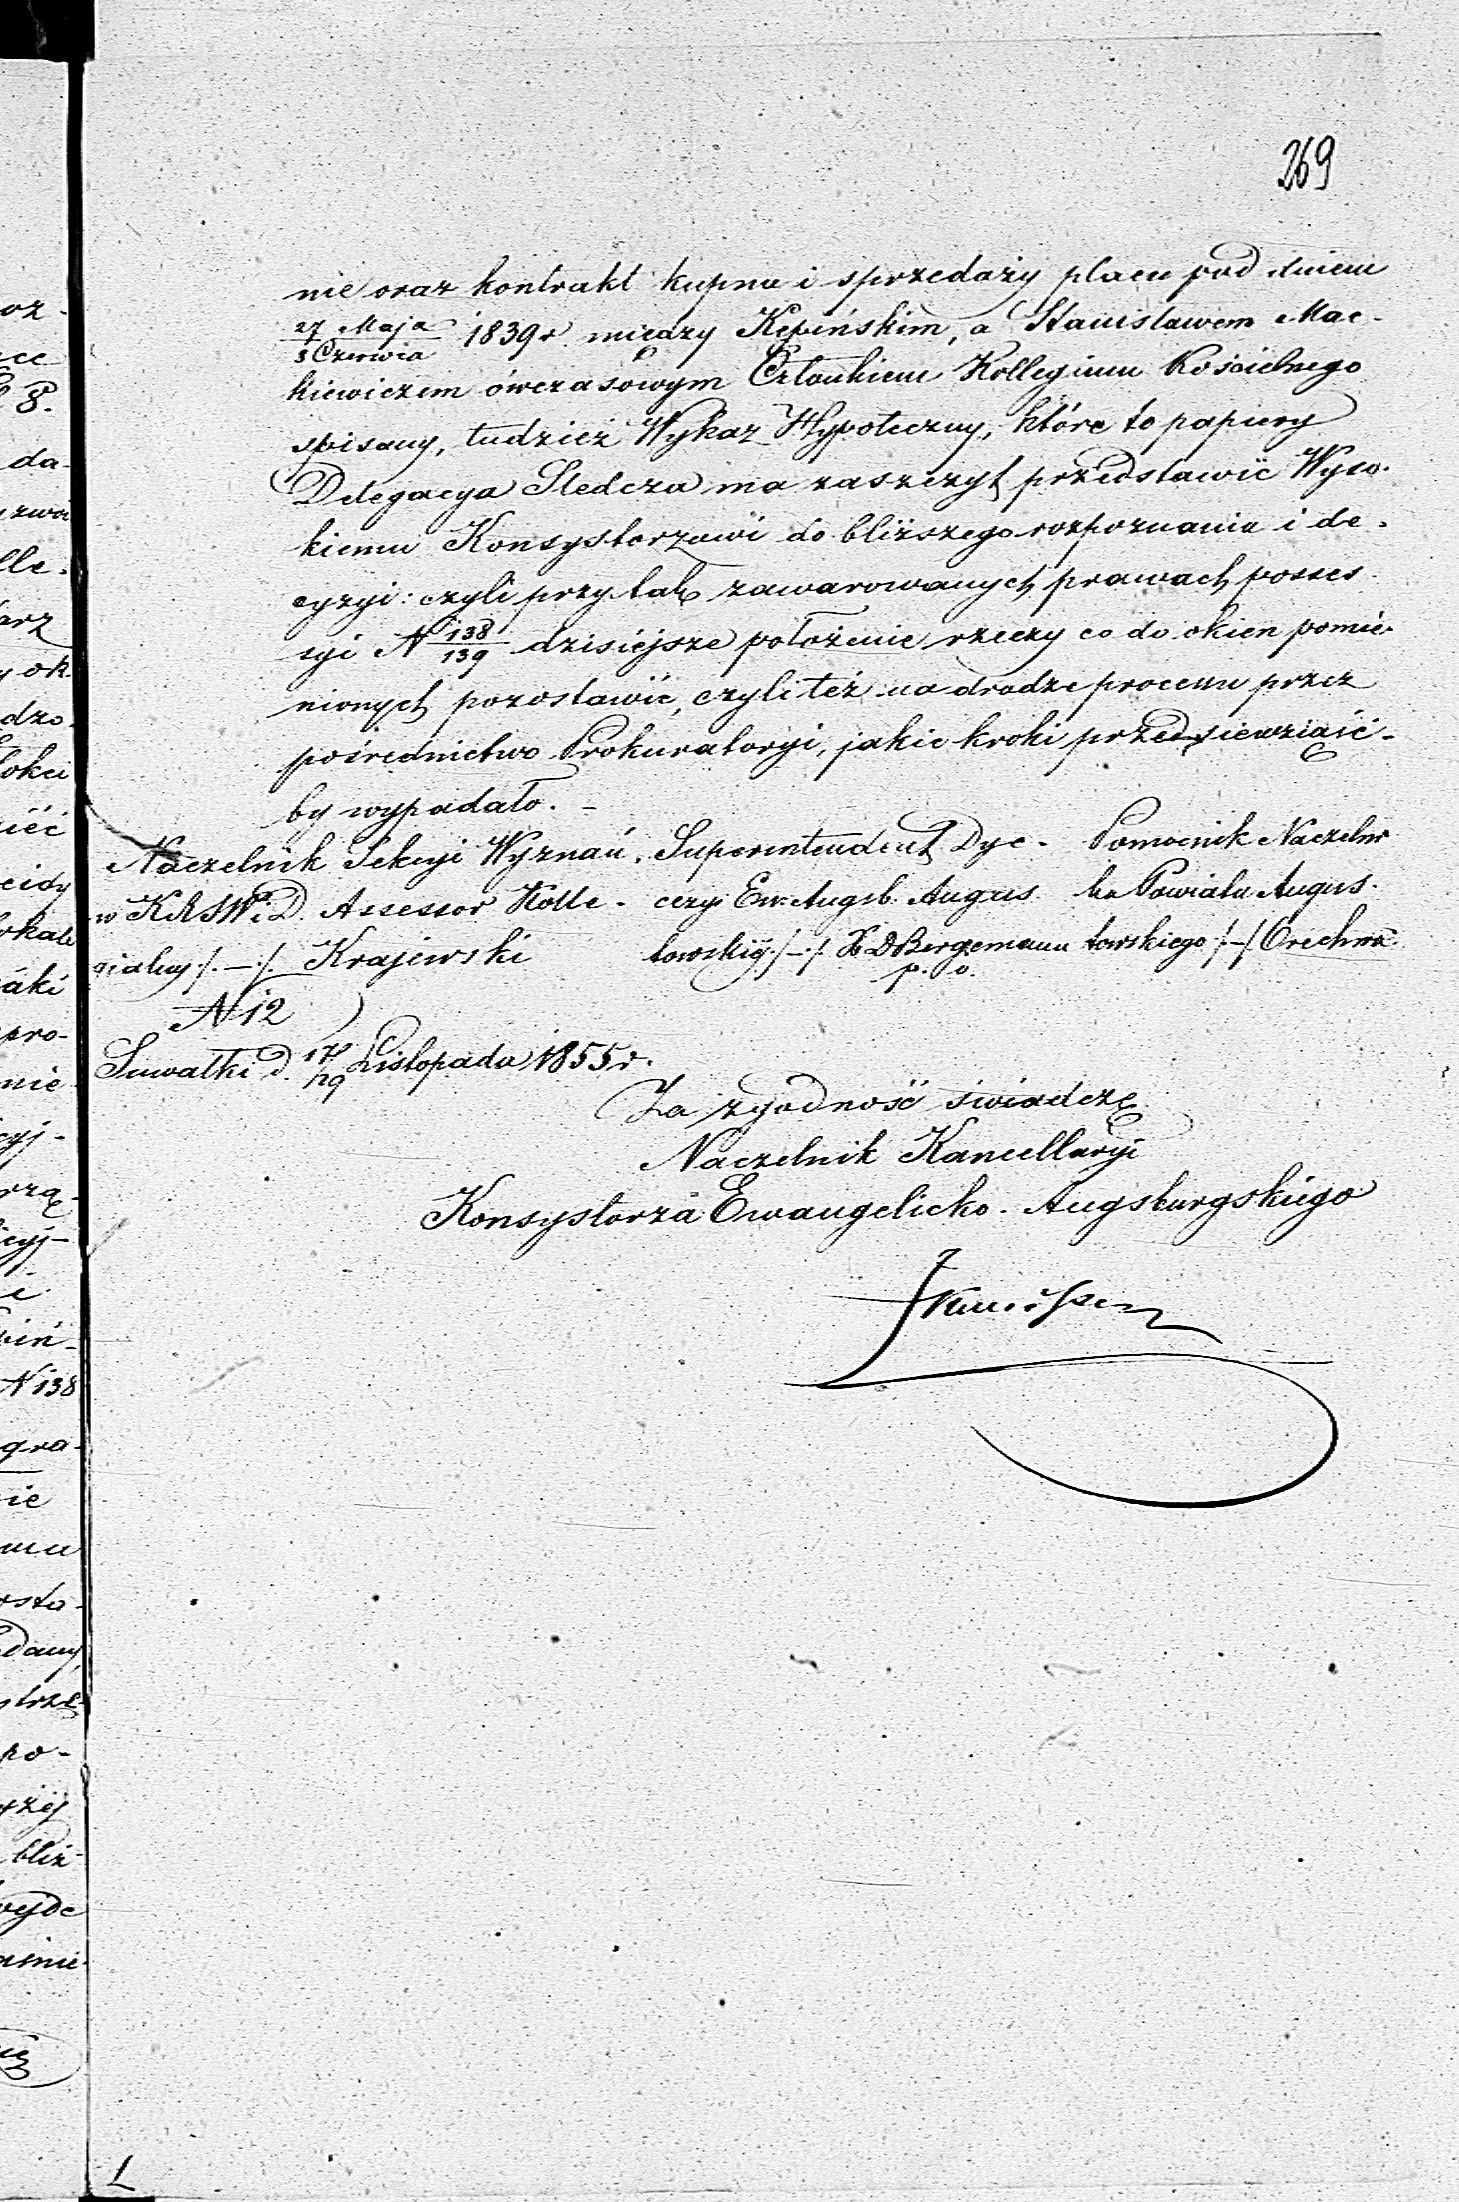 269
nie oraz kontrakt kupna i sprzedaży placu pod dniem
27 Maja / 8 Czerwca 1839 r. między Kepińskim, a Stanisławem Mac-
kiewiczem ówczasowym Członkiem Kollegium Kościelnego
spisany, tudzież Wykaz Hypoteczny, które to papiery
Delegacya Śledcza ma zaszczyt przedstawić Wyso-
kiemu Konsystorzowi do bliższego rozpoznania i de-
cyzyi: czyli przy tak zawarowanych prawach posses-
syi N 138/139 dzisiejsze położenie rzeczy co do okien pomie-
nionych pozostawić, czyli też na drodze procesu przez
pośrednictwo Prokuratoryi, jakie kroki przedsiewziąść-
by wypadało. -
Naczelnik Sekcyi Wyznań. Superintendent Dye- Pomocnik Naczelni
w KRSW.iD. Assessor Kolle- cezyi Ew: Augsb. Augus- ka Powiatu Augus-
gialny /.—./. Krajewski towskiej /.—/. X D Bergemann towskiego /.—/. Orechwa
p. o.
N 12
Suwałki d. 17/29 Listopada 1855 r.
Za zgodność świadczę
Naczelnik Kancellaryi
Konsystorza Ewangelicko-Augsburgskiego
oz-
ce
8.
da-
zwa
lle-
arz
ok-
dzo-
łokci
ieć
eidy
okali
áki
pro-
nie
cyj-
rzą-
icyj-
i
iń-
N 138
gra-
ie
mu
osta-
dany
strze-
po-
żej
bliż-
wyde
aśnie-
L